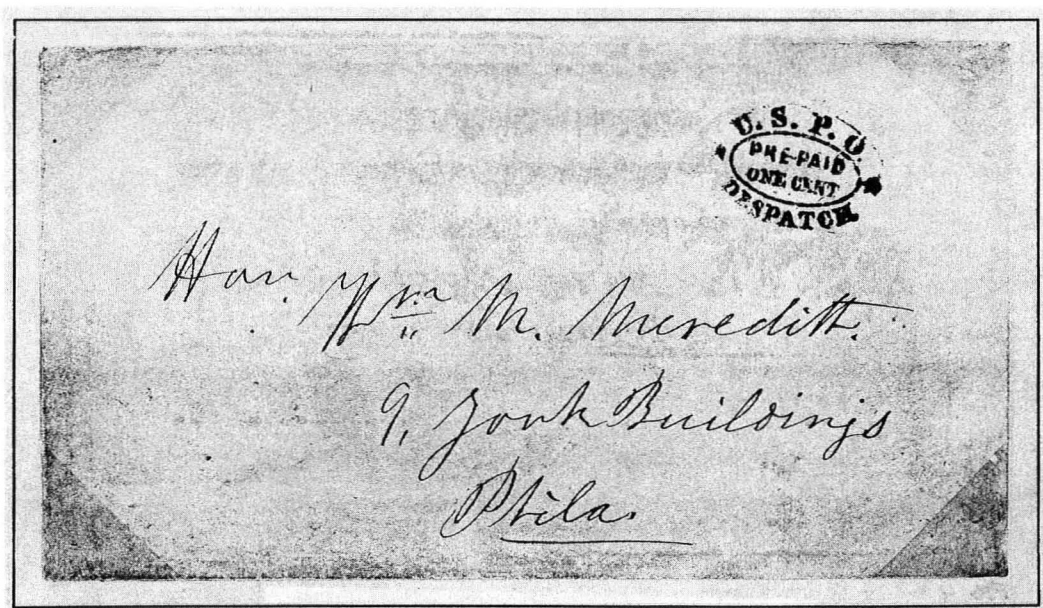 U. S. P. O.
PRE-PAID
ONE CENT
DESPATCH.
Hon. Wm M. Meredith.
9, York Buildings
Phila.